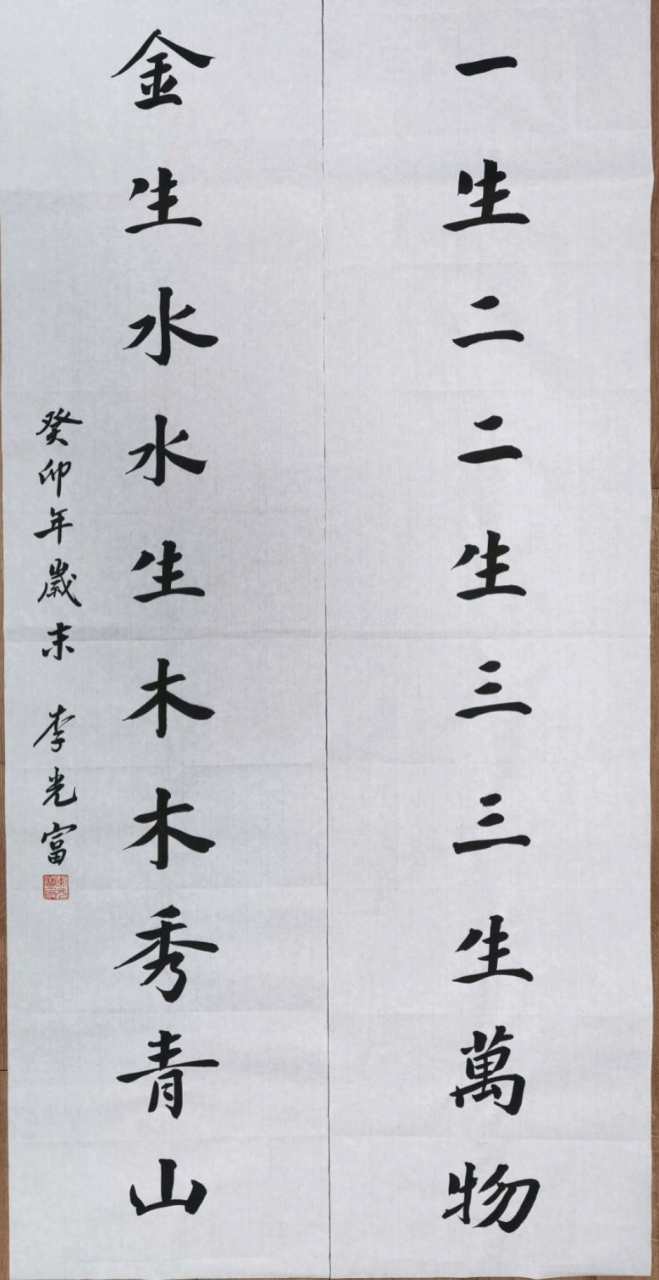 一生二二生三三生萬物
金生水水生木木秀青山
癸卯年歲末 李光富